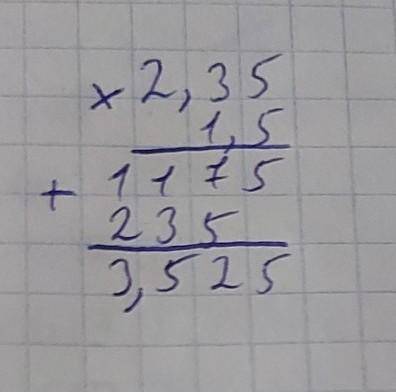 × 2,35
1,5
+ 1175
235
3,525